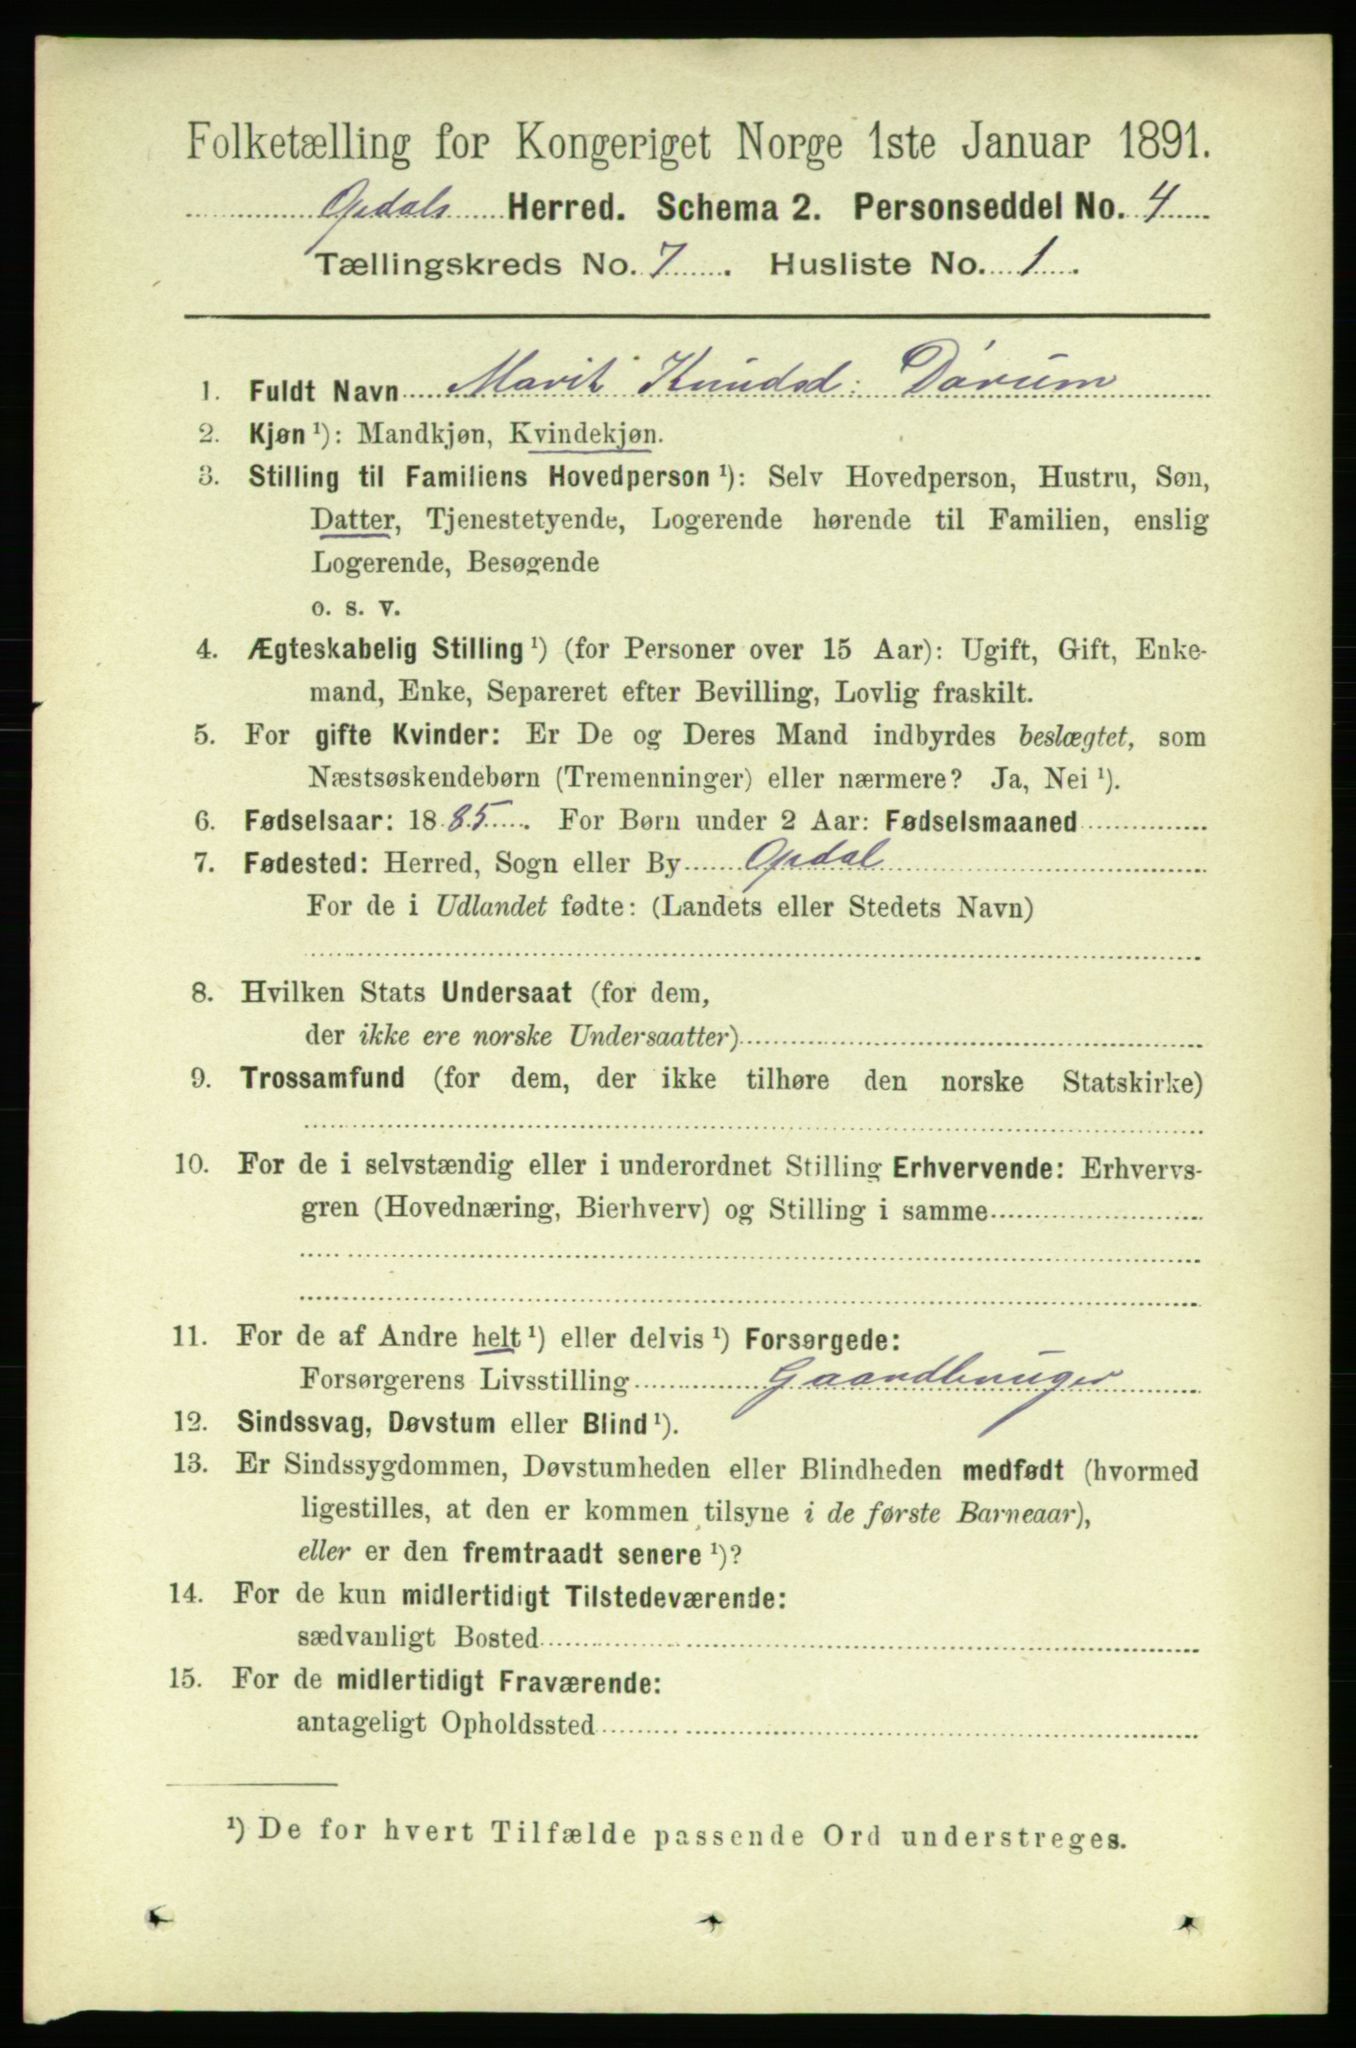 Folketælling for Kongeriget Norge 1ste Januar 1891.
Opdals Herred. Schema 2. Personseddel No. 4
Tællingskreds No. 7. Husliste No. 1.
1. Fuldt Navn Marit Knudsd: Dørum
2. Kjøn ¹): Mandkjøn, Kvindekjøn.
3. Stilling til Familiens Hovedperson ¹): Selv Hovedperson, Hustru, Søn,
Datter, Tjenestetyende, Logerende hørende til Familien, enslig
Logerende, Besøgende
o. s. v.
4. Ægteskabelig Stilling ¹) (for Personer over 15 Aar): Ugift, Gift, Enke-
mand, Enke, Separeret efter Bevilling, Lovlig fraskilt.
5. For gifte Kvinder: Er De og Deres Mand indbyrdes beslægtet, som
Næstsøskendebørn (Tremenninger) eller nærmere? Ja, Nei ¹).
6. Fødselsaar: 1885. For Børn under 2 Aar: Fødselsmaaned
7. Fødested: Herred, Sogn eller By Opdal
For de i Udlandet fødte: (Landets eller Stedets Navn)
8. Hvilken Stats Undersaat (for dem,
der ikke ere norske Undersaatter)
9. Trossamfund (for dem, der ikke tilhøre den norske Statskirke)
10. For de i selvstændig eller i underordnet Stilling Erhvervende: Erhvervs-
gren (Hovednæring, Bierhverv) og Stilling i samme
11. For de af Andre helt ¹) eller delvis ¹) Forsørgede:
Forsørgerens Livsstilling Gaardbruger
12. Sindssvag, Døvstum eller Blind ¹).
13. Er Sindssygdommen, Døvstumheden eller Blindheden medfødt (hvormed
ligestilles, at den er kommen tilsyne i de første Barneaar),
eller er den fremtraadt senere ¹)?
14. For de kun midlertidigt Tilstedeværende:
sædvanligt Bosted
15. For de midlertidigt Fraværende:
antageligt Opholdssted
¹) De for hvert Tilfælde passende Ord understreges.